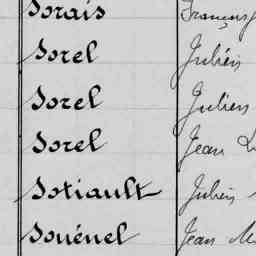 Sorais François
Sorel Julien
Sorel Julien
Sorel Jean
Sotiault Julien
Souénel Jean M